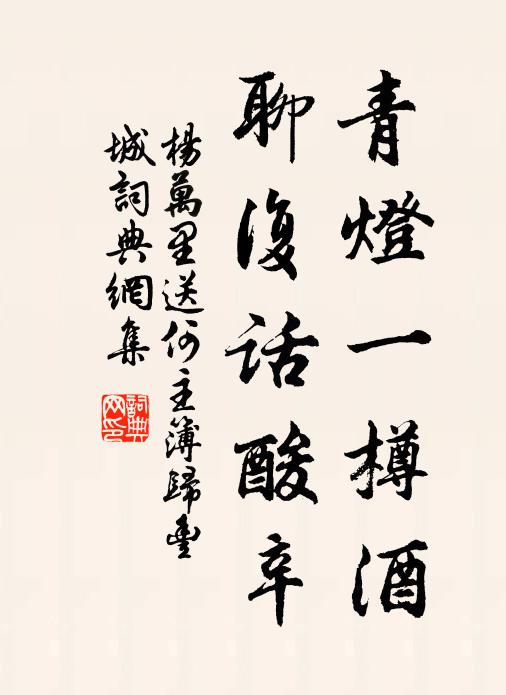 青燈一樽酒
聊復話酸辛
楊萬里送何主簿歸豐
城詞典網集
詞典
网印